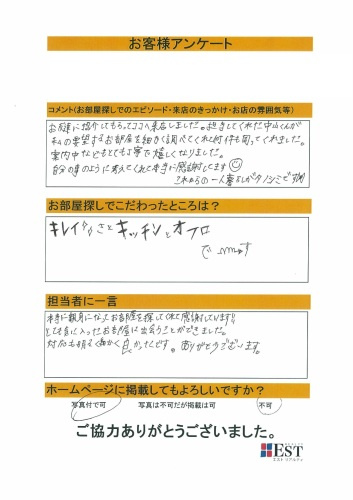 お客様アンケート
コメント(お部屋探しでのエピソード・来店のきっかけ・お店の雰囲気等)
お店に紹介してもらってココへ来店しました。担当してくれた中山くんが
私の要望するお部屋を細かく調べてくれて何件も回ってくれました。
案内中などもとても丁寧で嬉しくなりました。
自分の事のように考えてくれて本当に感謝してます
これからの一人暮らしがタノシミです
お部屋探しでこだわったところは?
キレイさとキッチンとオフロ
です
担当者に一言
本当に親身になってお部屋を探してくれて感謝しています!!
とても気に入ったお部屋に出会うことができました。
対応も明るく細かく良かったです。ありがとうございます。
ホームページに掲載してもよろしいですか?
写真付で可 写真は不可だが掲載は可 不可
ご協力ありがとうございました。
EST